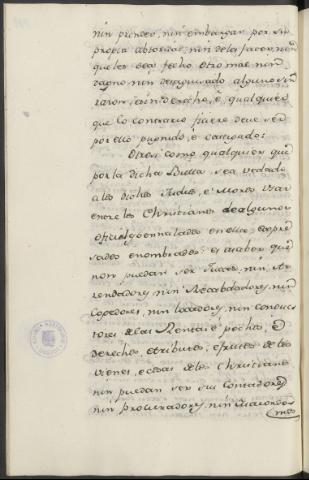 nin prender, nin embargar por su
propia abtoridad, nin dela facer, nin
que les sea fecho otro mal nin
dagno, nin desaguisado alguno sin
razon, é sin derecho, é qualquier
que lo contrario fuere deve ser
por ello pugnido, é castigado:
Otrosi como qualquier que
por la dicha Bulla sea vedado
a los dichos Judios, é Moros Usar
entre los Christianos de algunos
oficios en ella espre-
sados é nombrados: es a saber que
non puedan ser Jueces, nin Arr
rendadores, nin Recabdadores, nin
Cogedores, nin nin
tores de las Rentas é pechos, é
derechos, é tributos, é frutos de los
vienes, é cosas de los Christianos
nin puedan ser sus Contadores
nin procuradores, nin